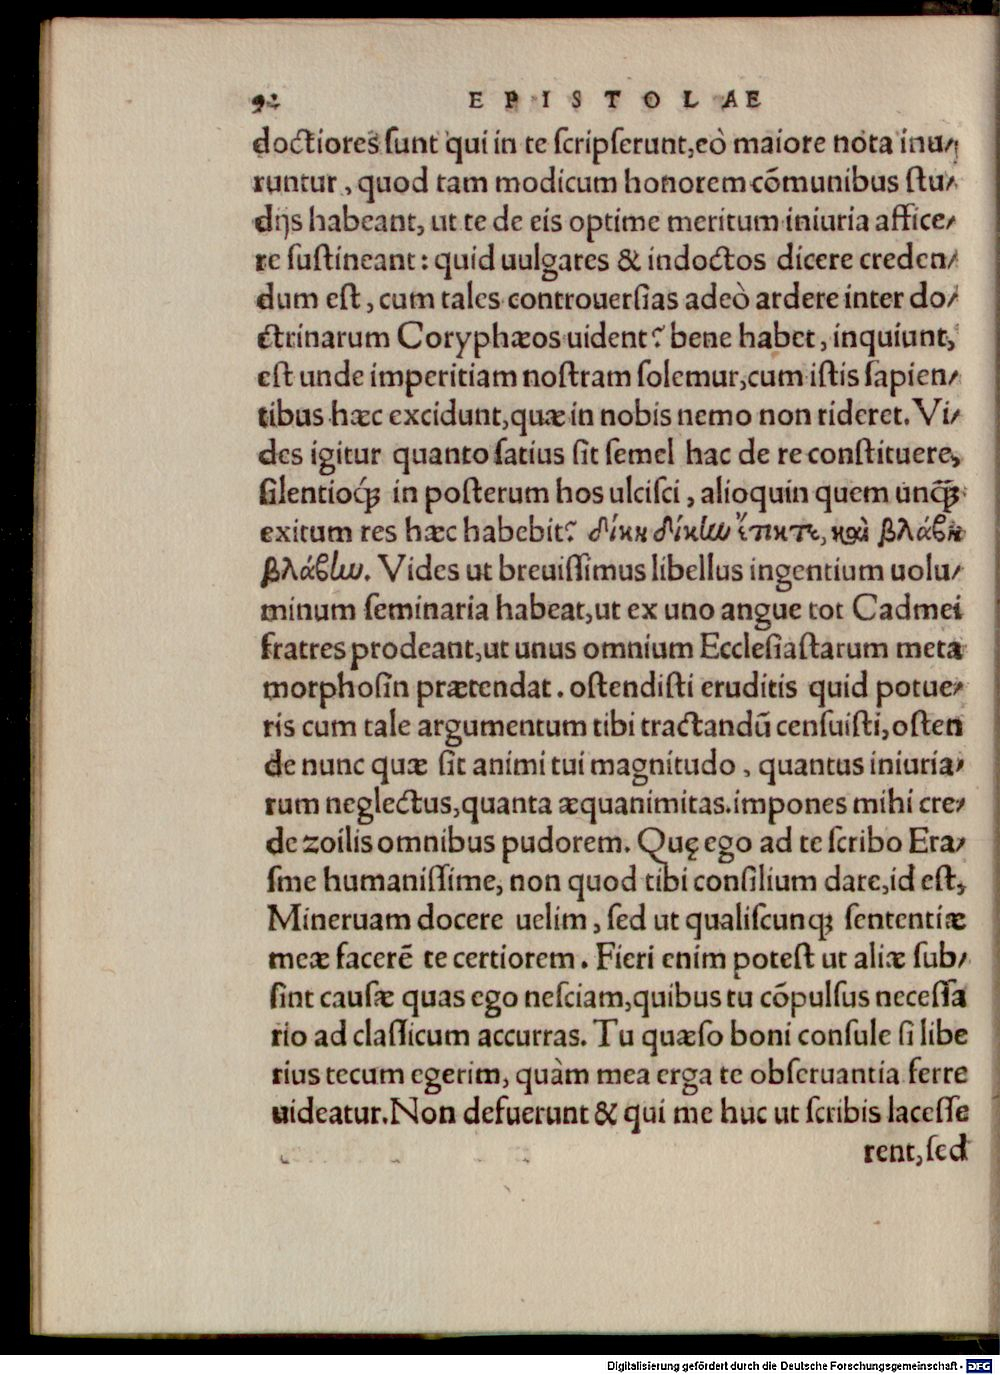 92 EPISTOLAE
doctiores sunt qui in te scripserunt,eò maiore nota inu⸗
runtur, quod tam modicum honorem cõmunibus stu⸗
dijs habeant, ut te de eis optime meritum iniuria affice⸗
re sustineant: quid uulgares & indoctos dicere creden⸗
dum est, cum tales controuersias adeò ardere inter do⸗
ctrinarum Coryphæos uident? bene habet, inquiunt,
est unde imperitiam nostram solemur,cum istis sapien⸗
tibus hæc excidunt,quæ in nobis nemo non rideret. Vi⸗
des igitur quanto satius sit semel hac de re constituere,
silentioq́ꝫ in posterum hos ulcisci, alioquin quem unq̃ꝫ
exitum res hæc habebit? δίκη δίκἰω ἔτικτε, καὶ βλάβη
βλάβἰω. Vides ut breuissimus libellus ingentium uolu⸗
minum seminaria habeat,ut ex uno angue tot Cadmei
fratres prodeant,ut unus omnium Ecclesiastarum meta
morphosin prætendat. ostendisti eruditis quid potue⸗
ris cum tale argumentum tibi tractandũ censuisti,osten
de nunc quæ sit animi tui magnitudo, quantus iniuria⸗
rum neglectus,quanta æquanimitas.impones mihi cre⸗
de zoilis omnibus pudorem. Quę ego ad te scribo Era⸗
sme humanissime, non quod tibi consilium dare,id est,
Mineruam docere uelim, sed ut qualiscunqꝫ sententiæ
meæ facerẽ te certiorem. Fieri enim potest ut aliæ sub⸗
sint causæ quas ego nesciam,quibus tu cõpulsus necessa
rio ad classicum accurras. Tu quæso boni consule si libe
rius tecum egerim, quàm mea erga te obseruantia ferre
uideatur.Non defuerunt & qui me huc ut scribis lacesse
rent,sed
Digitalisierung gefördert durch die Deutsche Forschungsgemeinschaft - DFG